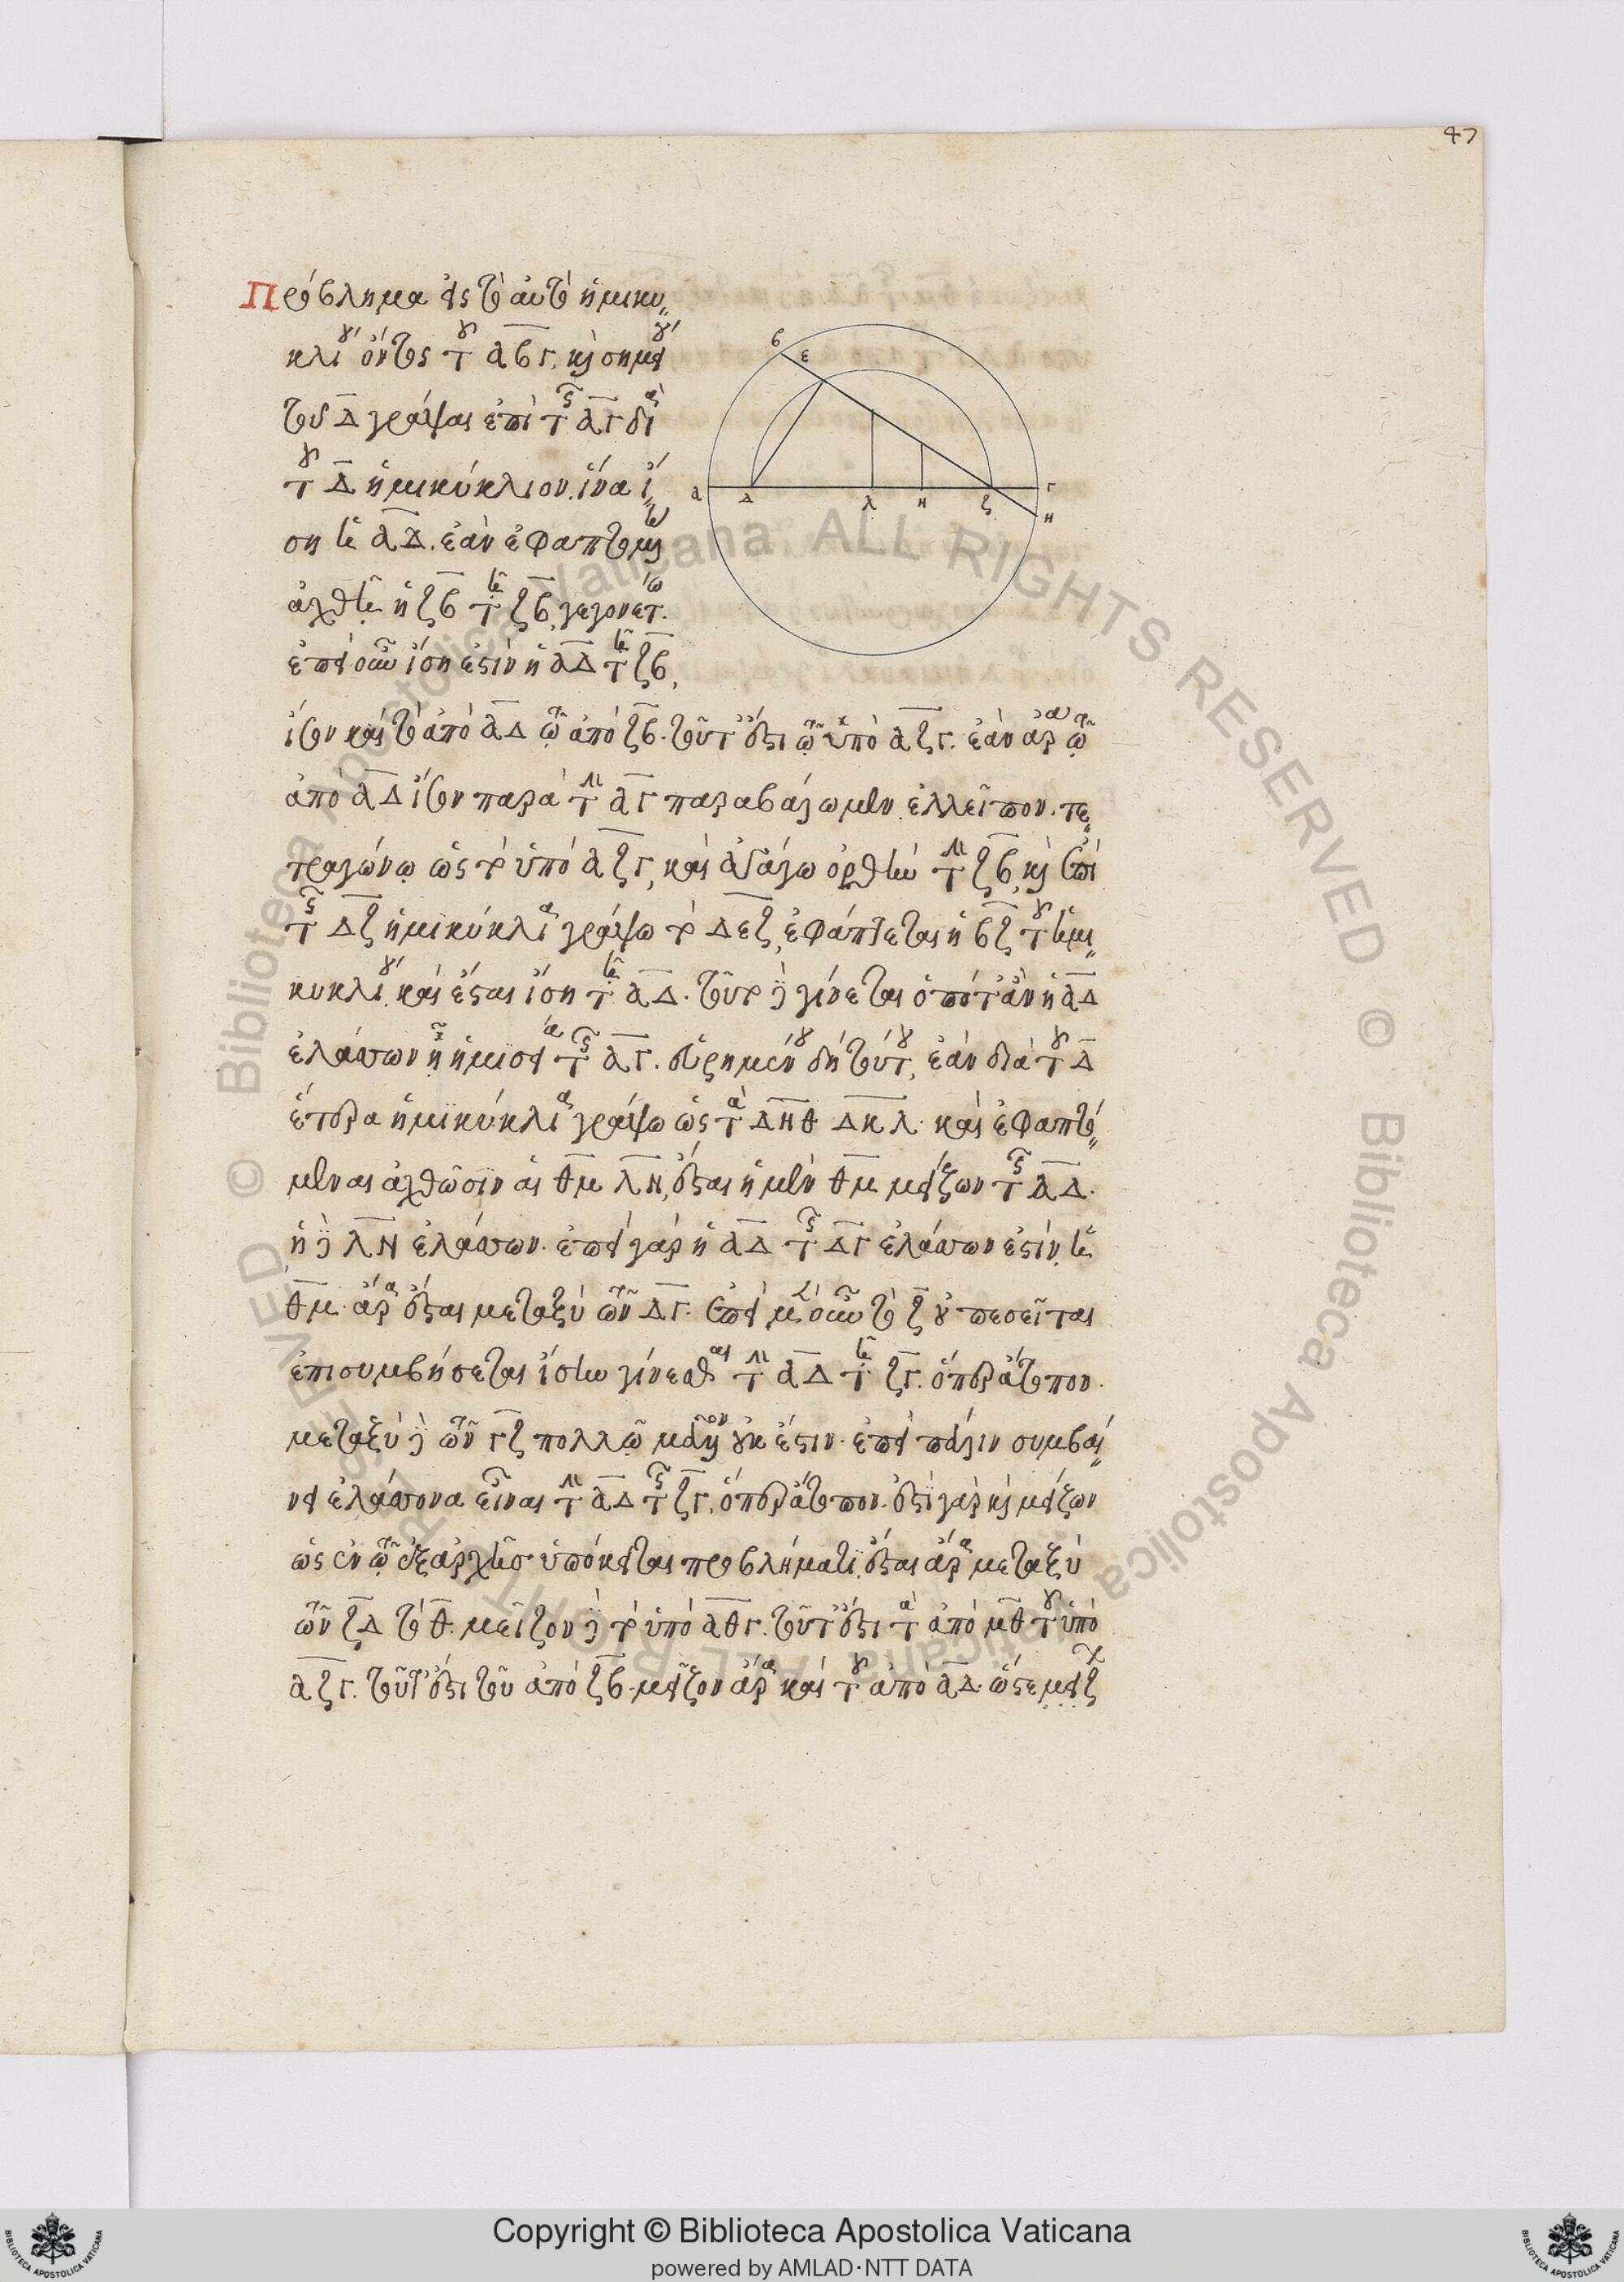 47
Πρόβλημα εἰς τὸ αὐτὸ ἡμικυ
κλίου ὄντος τοῦ ΑΒΓ, καὶ σημείου
τοῦ Δ γράψαι ἐπὶ τῆς ΑΓ διὰ
τοῦ Δ ἡμικύκλιον, ἵνα ἴ
ση ᾖ ΑΔ. ἐὰν ἐφαπτομένη
ἀχθῇ ἡ ΖΒ τῇ ΖΒ, γεγονέτω.
ἐπεὶ οὖν ἴση ἐστὶν ἡ ΑΔ τῇ ΖΒ,
ἴσον καὶ τὸ ἀπὸ ΑΔ τῷ ἀπὸ ΖΒ. τοῦτ' ἔστι τῷ ὑπὸ ΑΖΓ. ἐὰν ἄρα τῷ
ἀπὸ ΑΔ ἴσον παρὰ τὴν ΑΓ παραβάλωμεν ἐλλεῖπον τε
τραγώνῳ ὡς τὸ ὑπὸ ΑΖΓ, καὶ ἀγάγω ὀρθὴν τὴν ΖΒ, καὶ ἐπὶ
τῆς ΔΖ ἡμικύκλια γράψω τὸ ΔΕΖ, ἐφάπτεται ἡ ΒΖ τοῦ ἡμι
κυκλίου, καὶ ἔσται ἴση τῇ ΑΔ. τοῦτο δὲ γίνεται ὁπόταν ἡ ΑΔ
ἐλάττων ᾖ ἡμίσεια τῆς ΑΓ. εὑρημένου δὴ τούτου, ἐὰν διὰ τοῦ Δ
ἕτερα ἡμικύκλια γράψω ὡς τὰ ΔΗΘ ΔΚΛ. καὶ ἐφαπτό
μεναι ἀχθῶσιν αἱ ΘΜ ΛΝ, ἔσται ἡ μὲν ΘΜ μείζων τῆς ΑΔ.
ἡ δὲ ΛΝ ἐλάττων. ἐπεὶ γὰρ ἡ ΑΔ τῆς ΔΓ ἐλάττων ἐστίν, ἡ
ΘΜ ἄρα ἔσται μεταξὺ τῶν ΔΓ. ἐπεὶ μὲν οὖν τὸ Ζ οὐ πεσεῖται
ἐπισυμβήσεται ἴσην γίνεσθαι τὴν ΑΔ τῇ ΖΓ. ὅπερ ἄτοπον.
μεταξὺ δὲ τῶν ΓΖ πολλῷ μᾶλλον οὐκ ἔστιν. ἐπεὶ πάλιν συμβαί
νει ἐλάττονα εἶναι τὴν ΑΔ τῆς ΖΓ, ὅπερ ἄτοπον. ἔστι γὰρ καὶ μείζων
ὡς ἐν τῷ ἐξ ἀρχῆς ὑπόκειται προβλήματι. ἔσται ἄρα μεταξὺ
τῶν ΖΔ τὸ Θ. μεῖζον δὲ τὸ ὑπὸ ΑΘΓ. τοῦτ' ἔστι τὰ ἀπὸ ΜΘ τοῦ ὑπὸ
ΑΖΓ. τοῦτ' ἔστι τοῦ ἀπὸ ΖΒ. μεῖζον ἄρα καὶ τοῦ ἀπὸ ΑΔ. ὥστε μείζ
Β Ε
Α Δ Λ Η Ζ Γ
Η
Copyright © Biblioteca Apostolica Vaticana
powered by AMLAD·NTT DATA